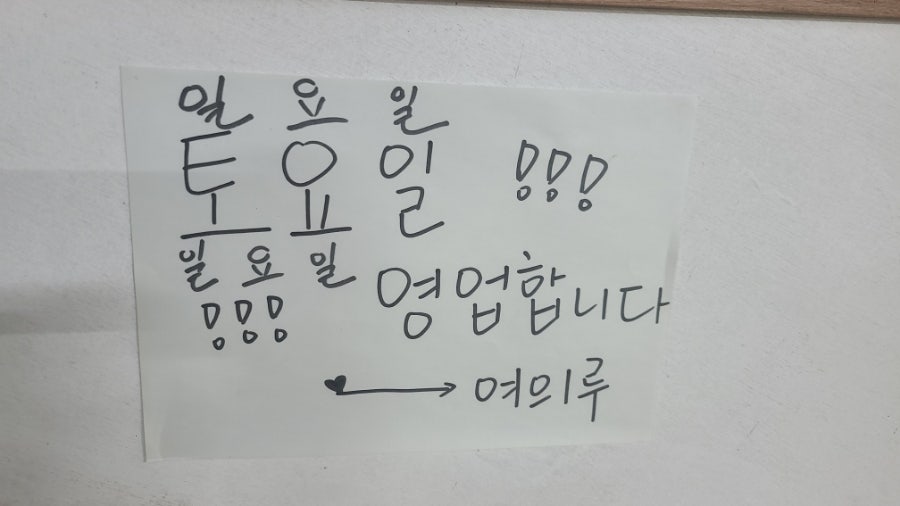 일 요 일
토 요 일 !!!
일 요 일
!!! 영업합니다
♥→ 여의루